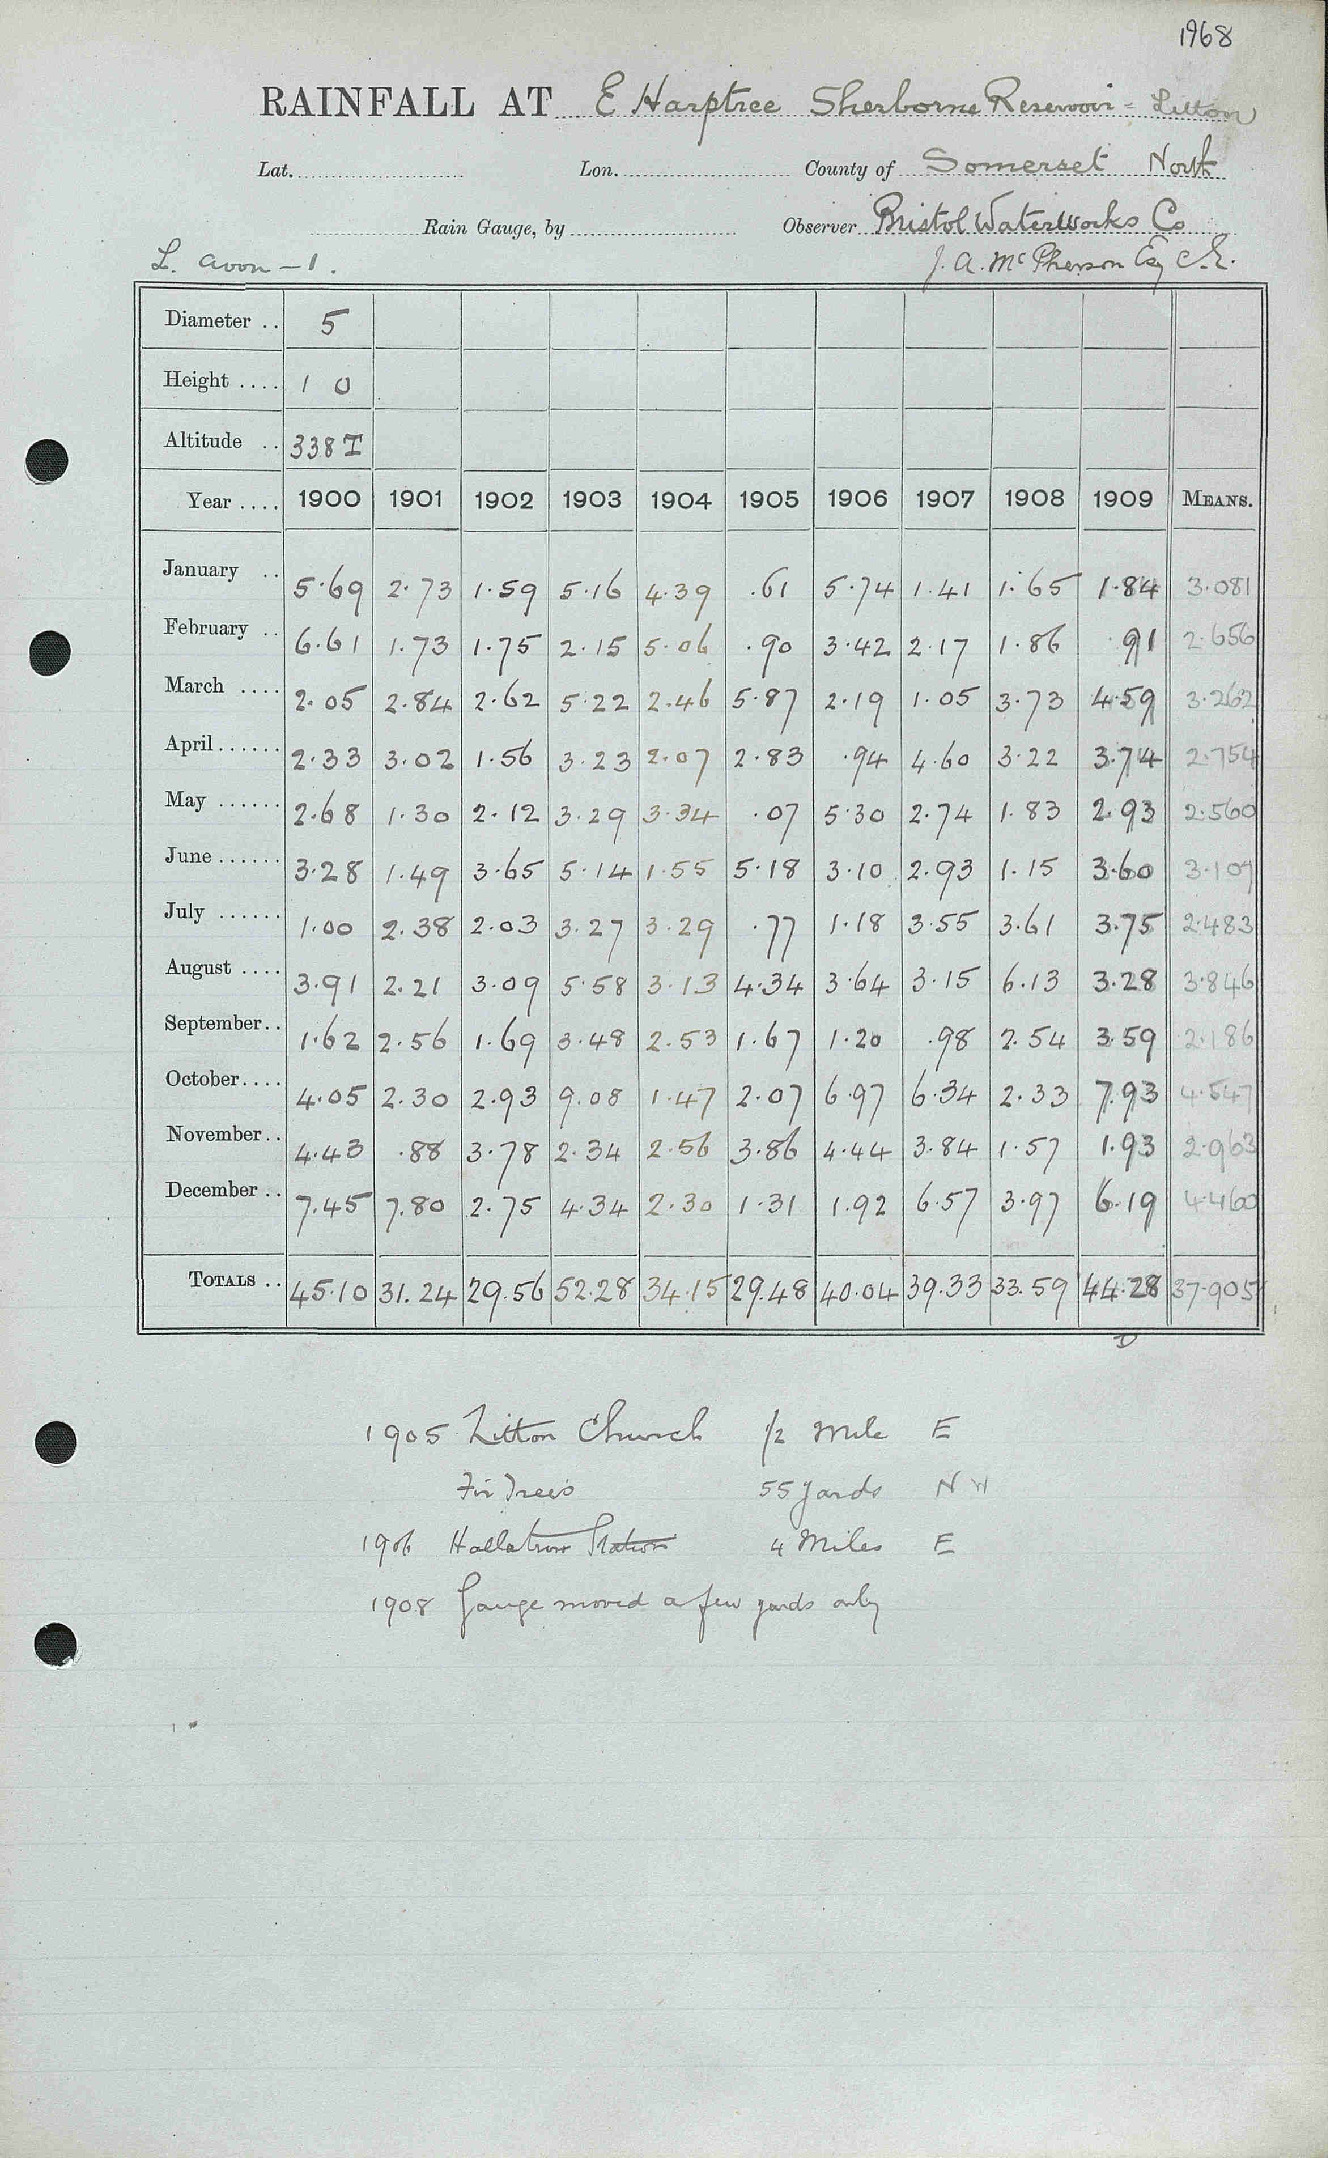 1968
RAINFALL AT E Harptree Sherborne Reservoir = Litton
Lat. Lon. County of Somerset North
Rain Gauge, by Observer Bristol Waterworks Co
L. Avon - 1. J. A. McPherson Esq C.E.
Diameter .. 5
Height .... 1 0
Altitude .. 338 T
Year .... 1900 1901 1902 1903 1904 1905 1906 1907 1908 1909 MEANS.
January .. 5.69 2.73 1.59 5.16 4.39 .61 5.74 1.41 1.65 1.84 3.081
February .. 6.61 1.73 1.75 2.15 5.06 .90 3.42 2.17 1.86 .91 2.656
March .... 2.05 2.84 2.62 5.22 2.46 5.87 2.19 1.05 3.73 4.59 3.262
April...... 2.33 3.02 1.56 3.23 2.07 2.83 .94 4.60 3.22 3.74 2.754
May ...... 2.68 1.30 2.12 3.29 3.34 .07 5.30 2.74 1.83 2.93 2.560
June...... 3.28 1.49 3.65 5.14 1.55 5.18 3.10 2.93 1.15 3.60 3.107
July ...... 1.00 2.38 2.03 3.27 3.29 .77 1.18 3.55 3.61 3.75 2.483
August .... 3.91 2.21 3.09 5.58 3.13 4.34 3.64 3.15 6.13 3.28 3.846
September.. 1.62 2.56 1.69 3.48 2.53 1.67 1.20 .98 2.54 3.59 2.186
October.... 4.05 2.30 2.93 9.08 1.47 2.07 6.97 6.34 2.33 7.93 4.547
November.. 4.43 .88 3.78 2.34 2.56 3.86 4.44 3.84 1.57 1.93 2.963
December .. 7.45 7.80 2.75 4.34 2.30 1.31 1.92 6.57 3.97 6.19 4.460
TOTALS .. 45.10 31.24 29.56 52.28 34.15 29.48 40.04 39.33 33.59 44.28 37.905
D
1905 Litton Church 1/2 Mile E
Fir Trees 55 yards N W
1906 Hallatrow Station 4 Miles E
1908 Gauge moved a few yards only